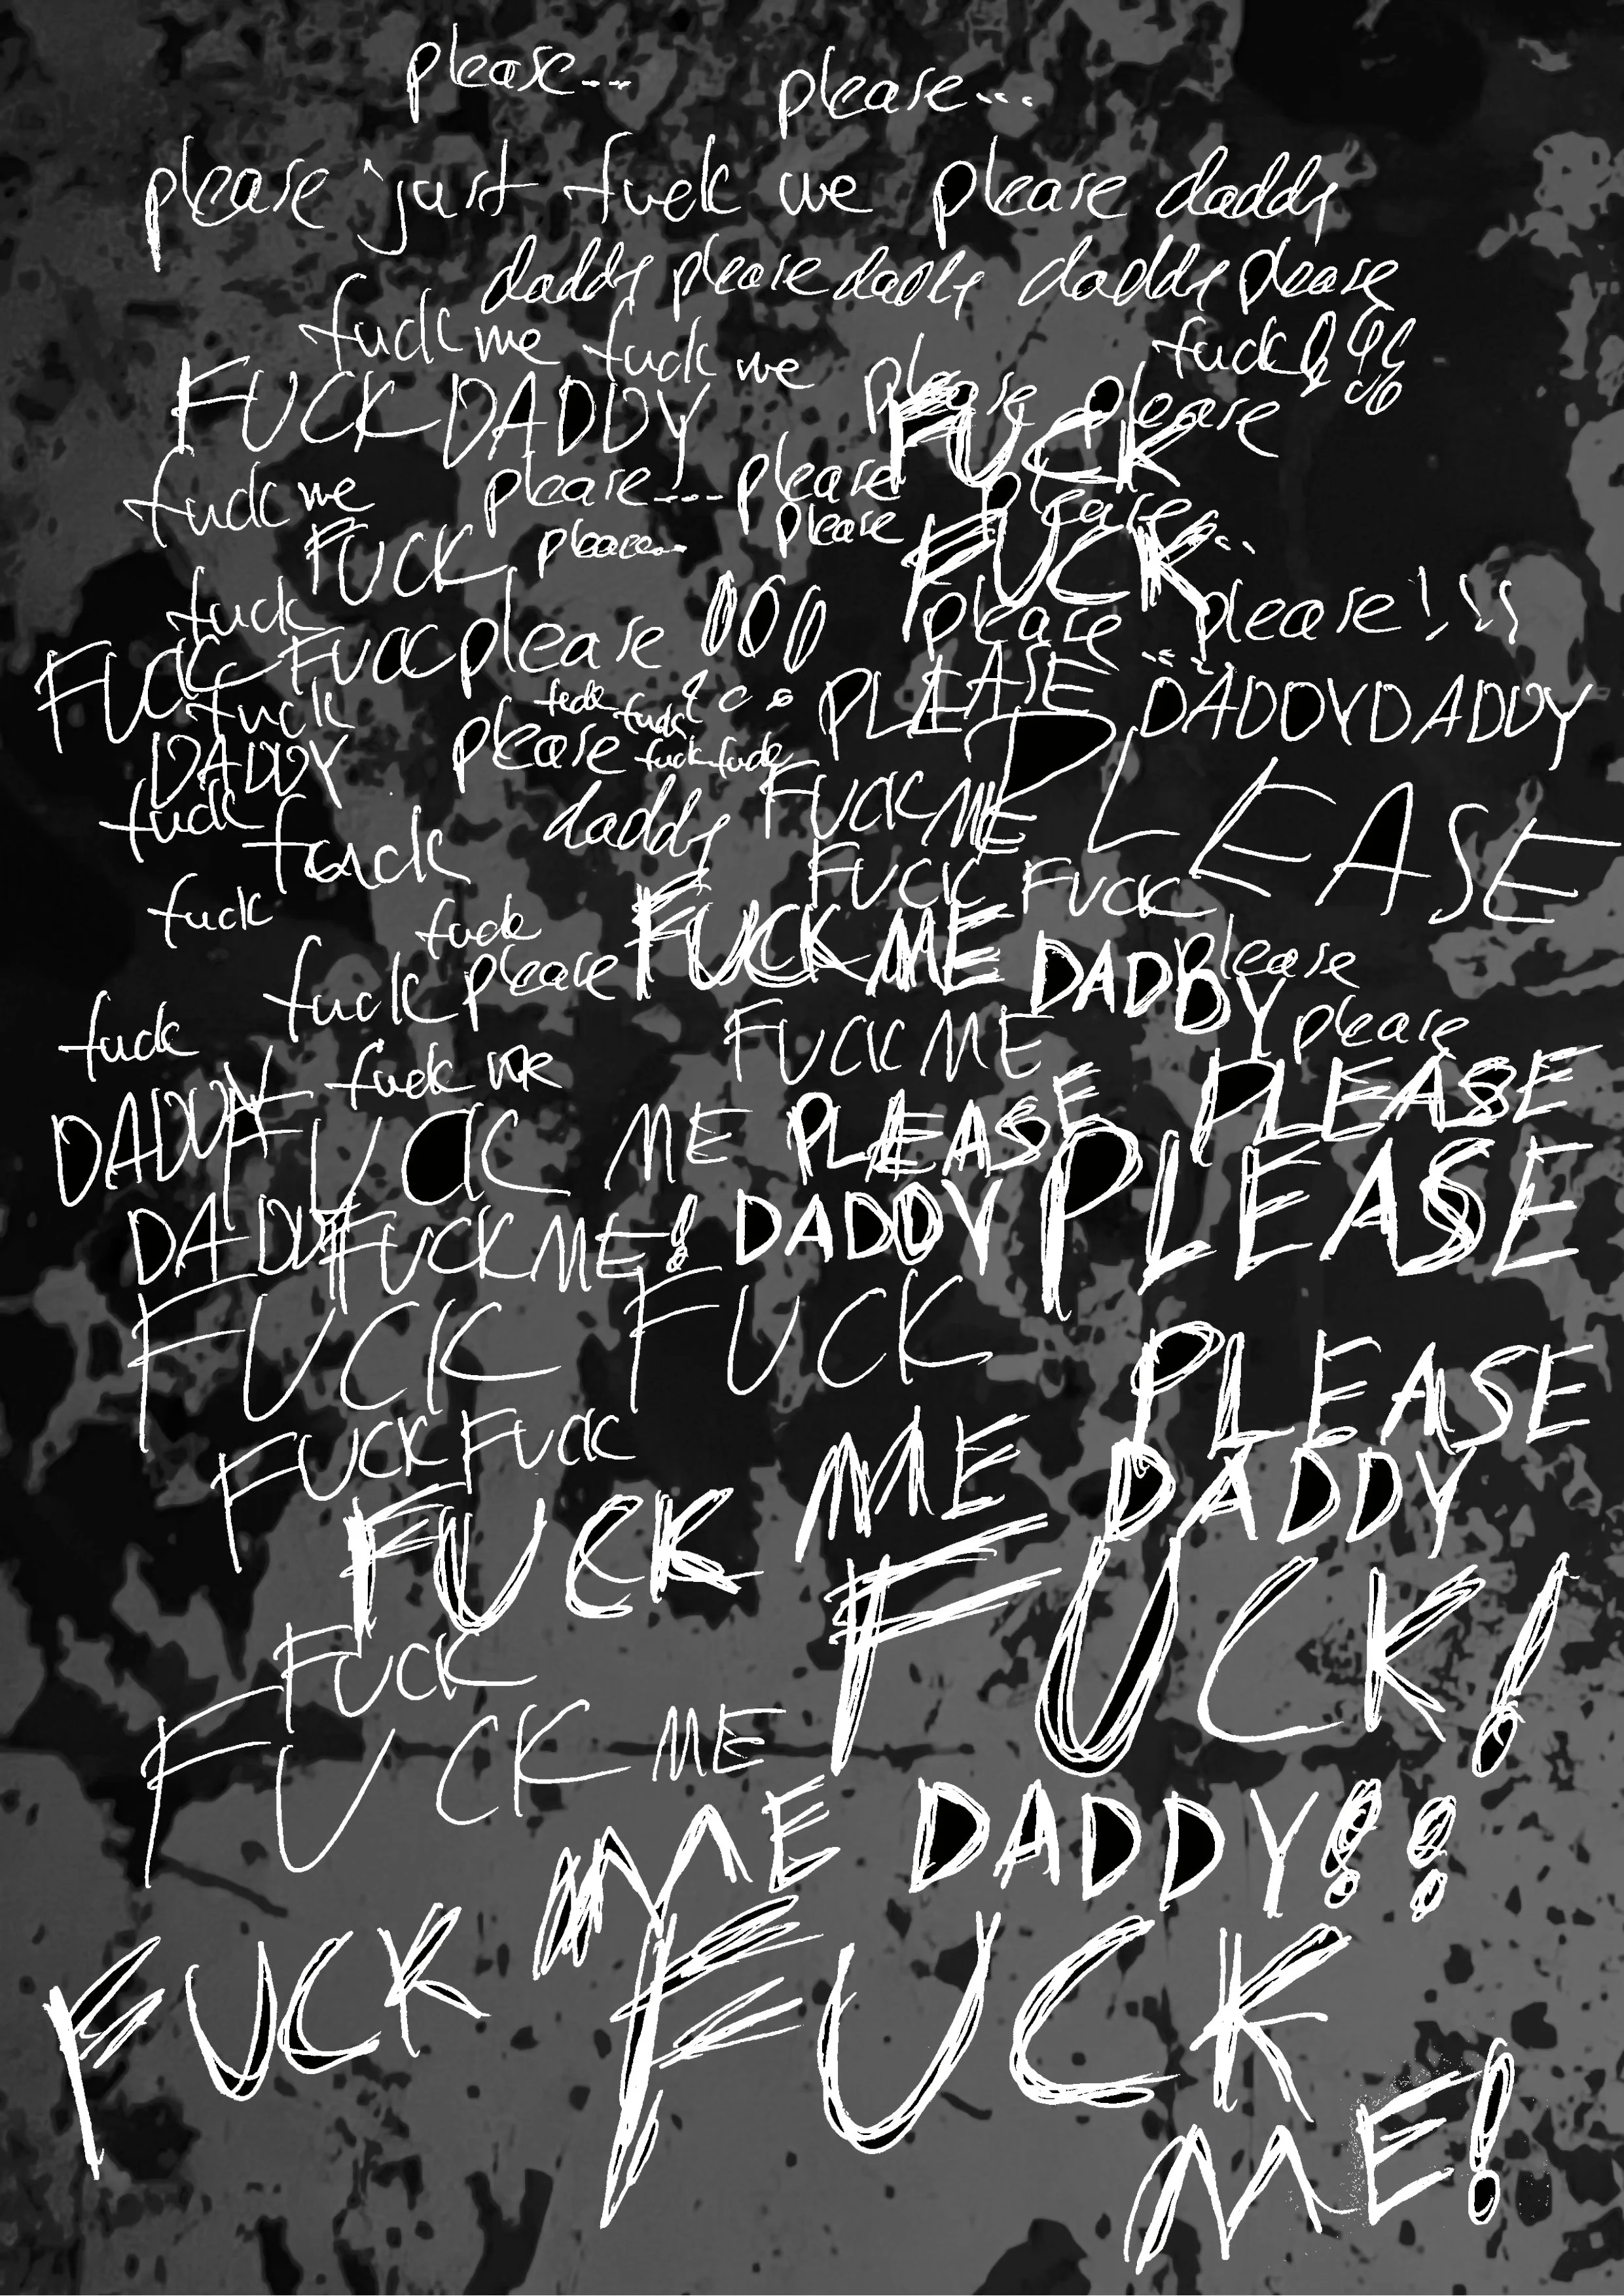 please... please...
please just fuck me please daddy
daddy please daddy daddy please
fuck me fuck me please please fuck!!!
FUCK DADDY FUCK
fuck me please... please please...
FUCK please... please FUCK
fuck please please!!!
FUCK FUCK please !!! please...
fuck fuck fuck PLEASE DADDY DADDY
DADDY please fuck fuck PLEASE
fuck fuck daddy FUCK ME
FUCK FUCK
fuck fuck FUCK ME DADDY please
fuck please please
fuck FUCK ME
fuck me PLEASE
DADDY FUCK ME PLEASE PLEASE
DADDY FUCK ME! DADDY
FUCK FUCK
PLEASE
FUCK FUCK ME DADDY
FUCK FUCK!
FUCK
FUCK ME
ME DADDY!!
FUCK FUCK
ME!